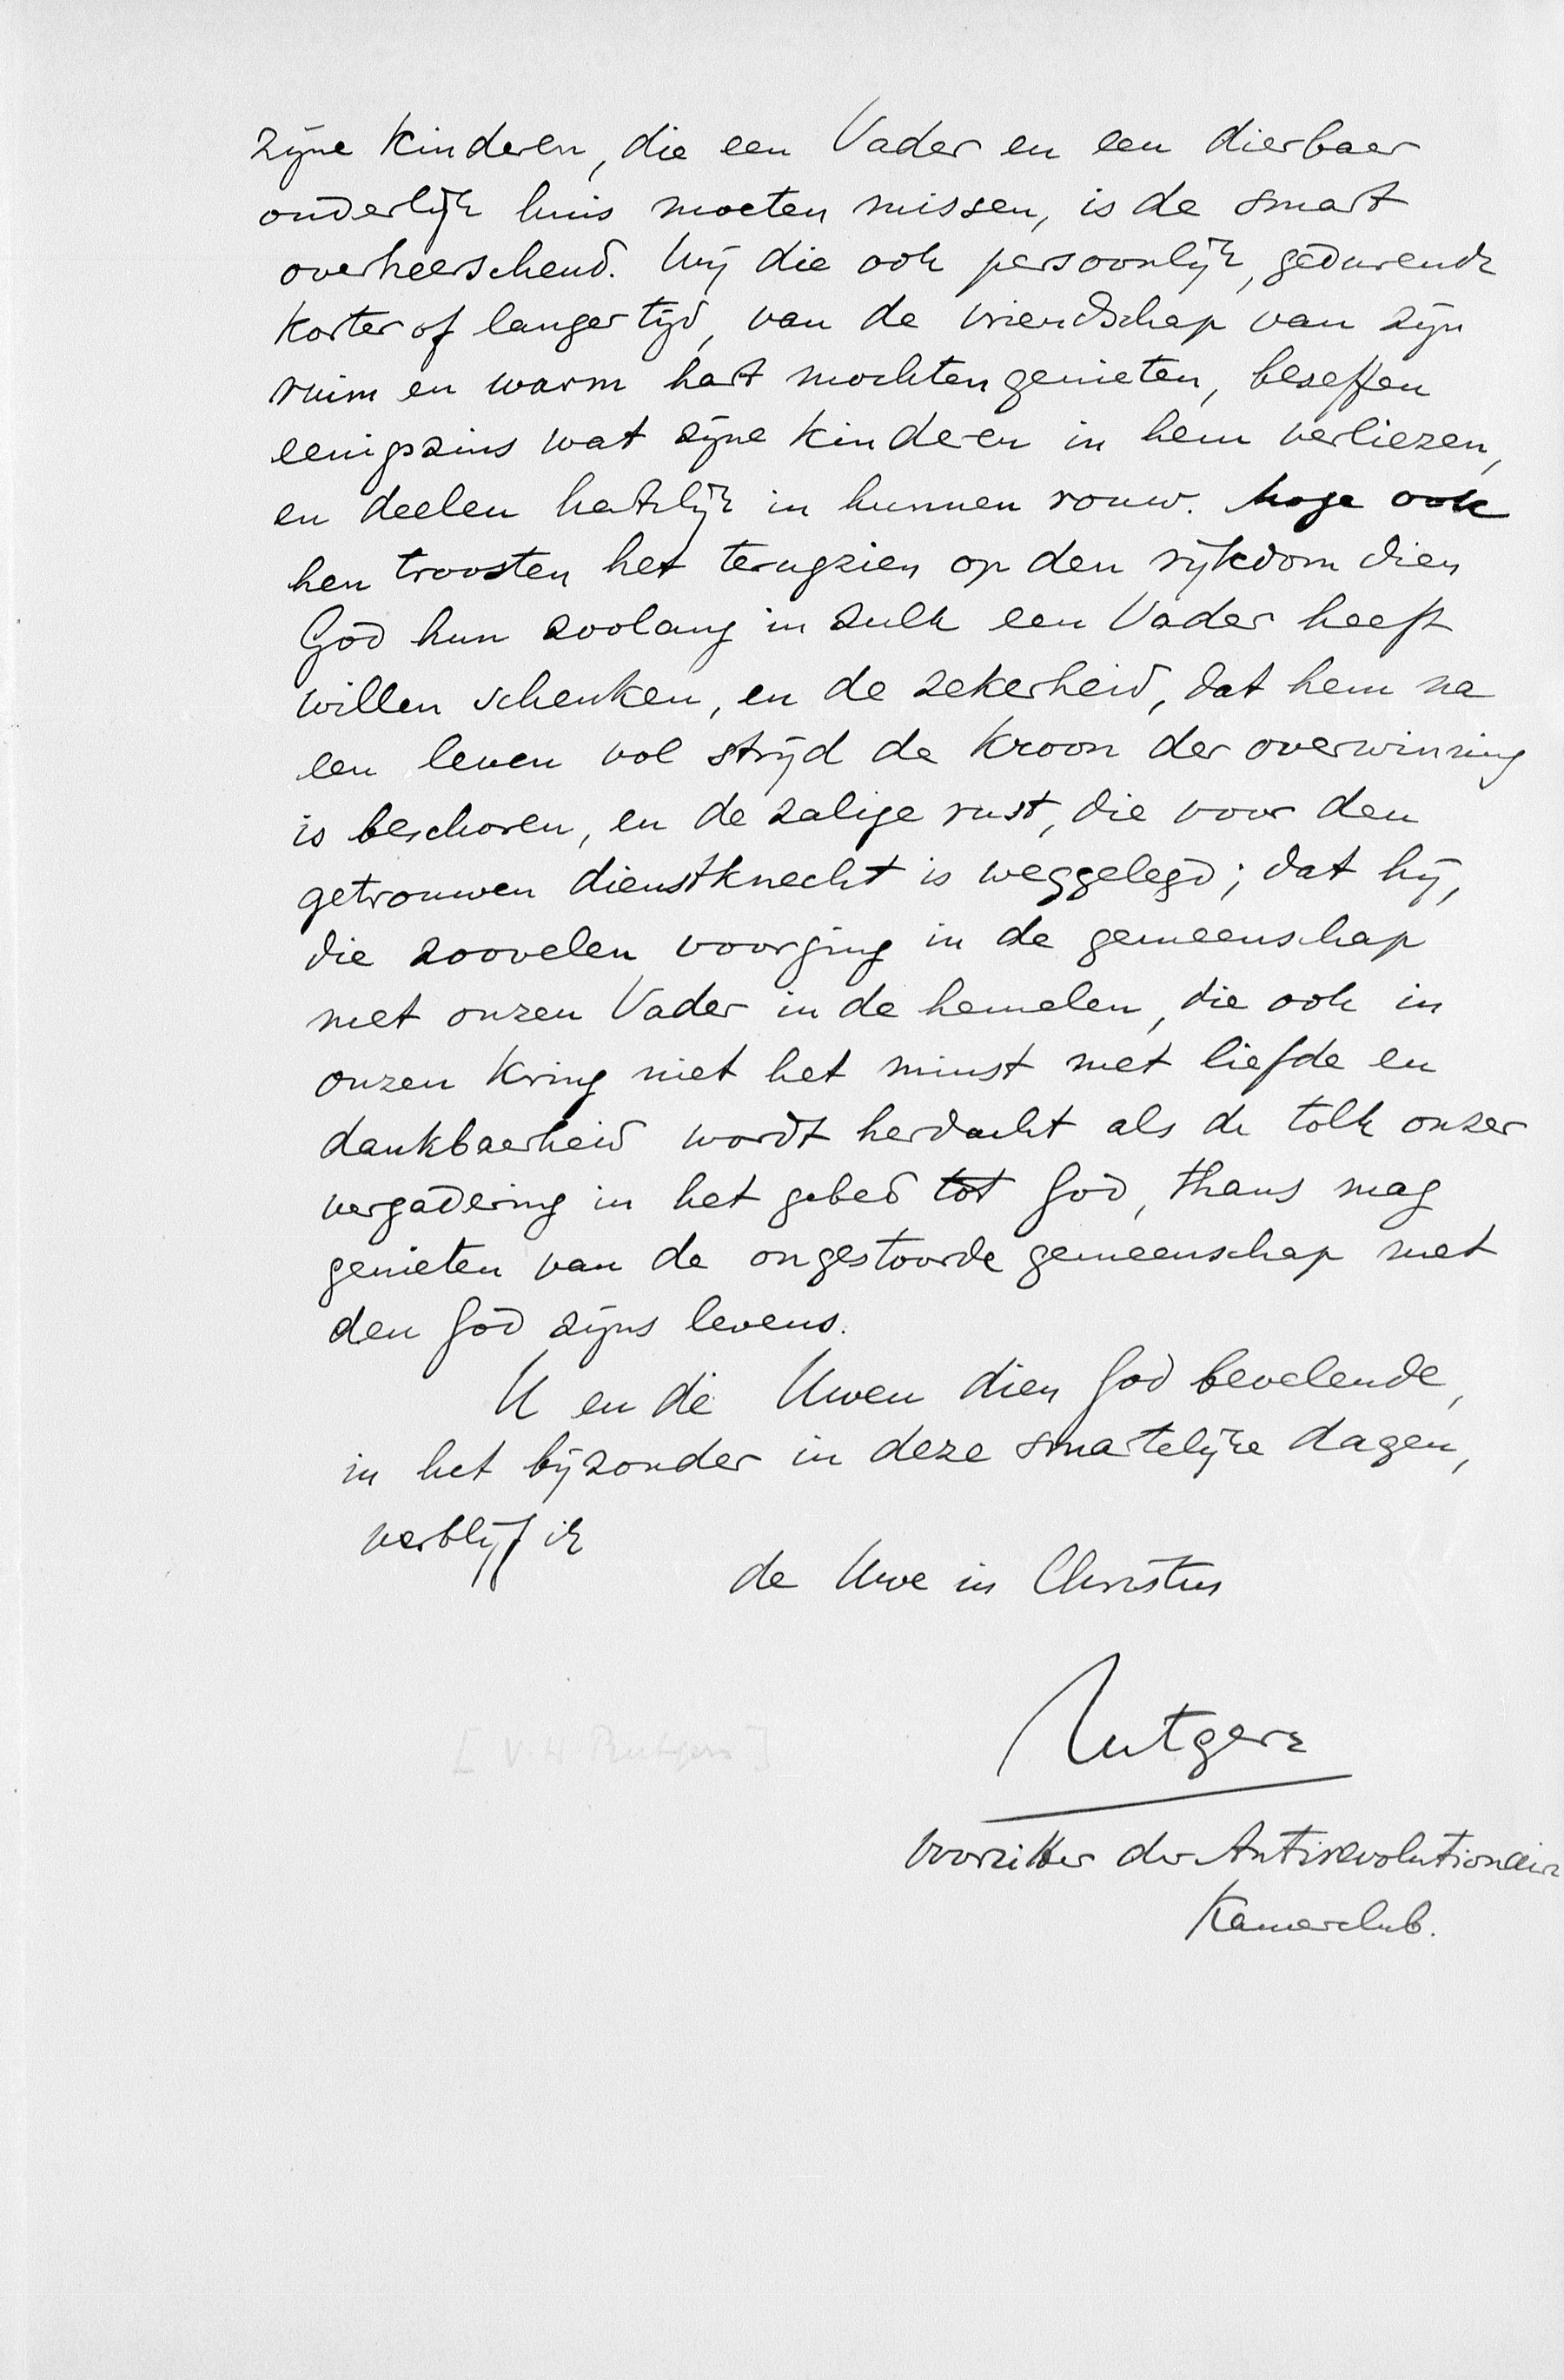 zijne kinderen, die een Vader en een dierbaar
ouderlijk huis moeten missen, is de smart
overheerschend. Wij die ook persoonlijk, gedurende
korter of langer tijd, van de vriendschap van zijn
ruim en warm hart mochten genieten, beseffen
eenigszins wat zijne kinderen in hem verliezen,
en deelen hartelijk in hunnen rouw. Moge ook
hen troosten het terugzien op den rijkdom dien
God hun zoolang in zulk een Vader heeft
willen schenken, en de zekerheid, dat hem na
een leven vol strijd de kroon der overwinning
is beschoren, en de zalige rust, die voor den
getrouwen dienstknecht is weggelegd; dat hij,
die zoovelen voorging in de gemeenschap
met onzen Vader in de hemelen, die ook in
onzen kring niet het minst met liefde en
dankbaarheid wordt herdacht als de tolk onzer
vergadering in het gebed tot God, thans mag
genieten van de ongestoorde gemeenschap met
den God zijns levens.
U en de Uwen dien God bevelende,
in het bijzonder in deze smartelijke dagen,
verblijf ik
de Uwe in Christus
Rutgers
[V.H. Rutgers]
Voorzitter der Antirevolutionaire
Kamerclub.